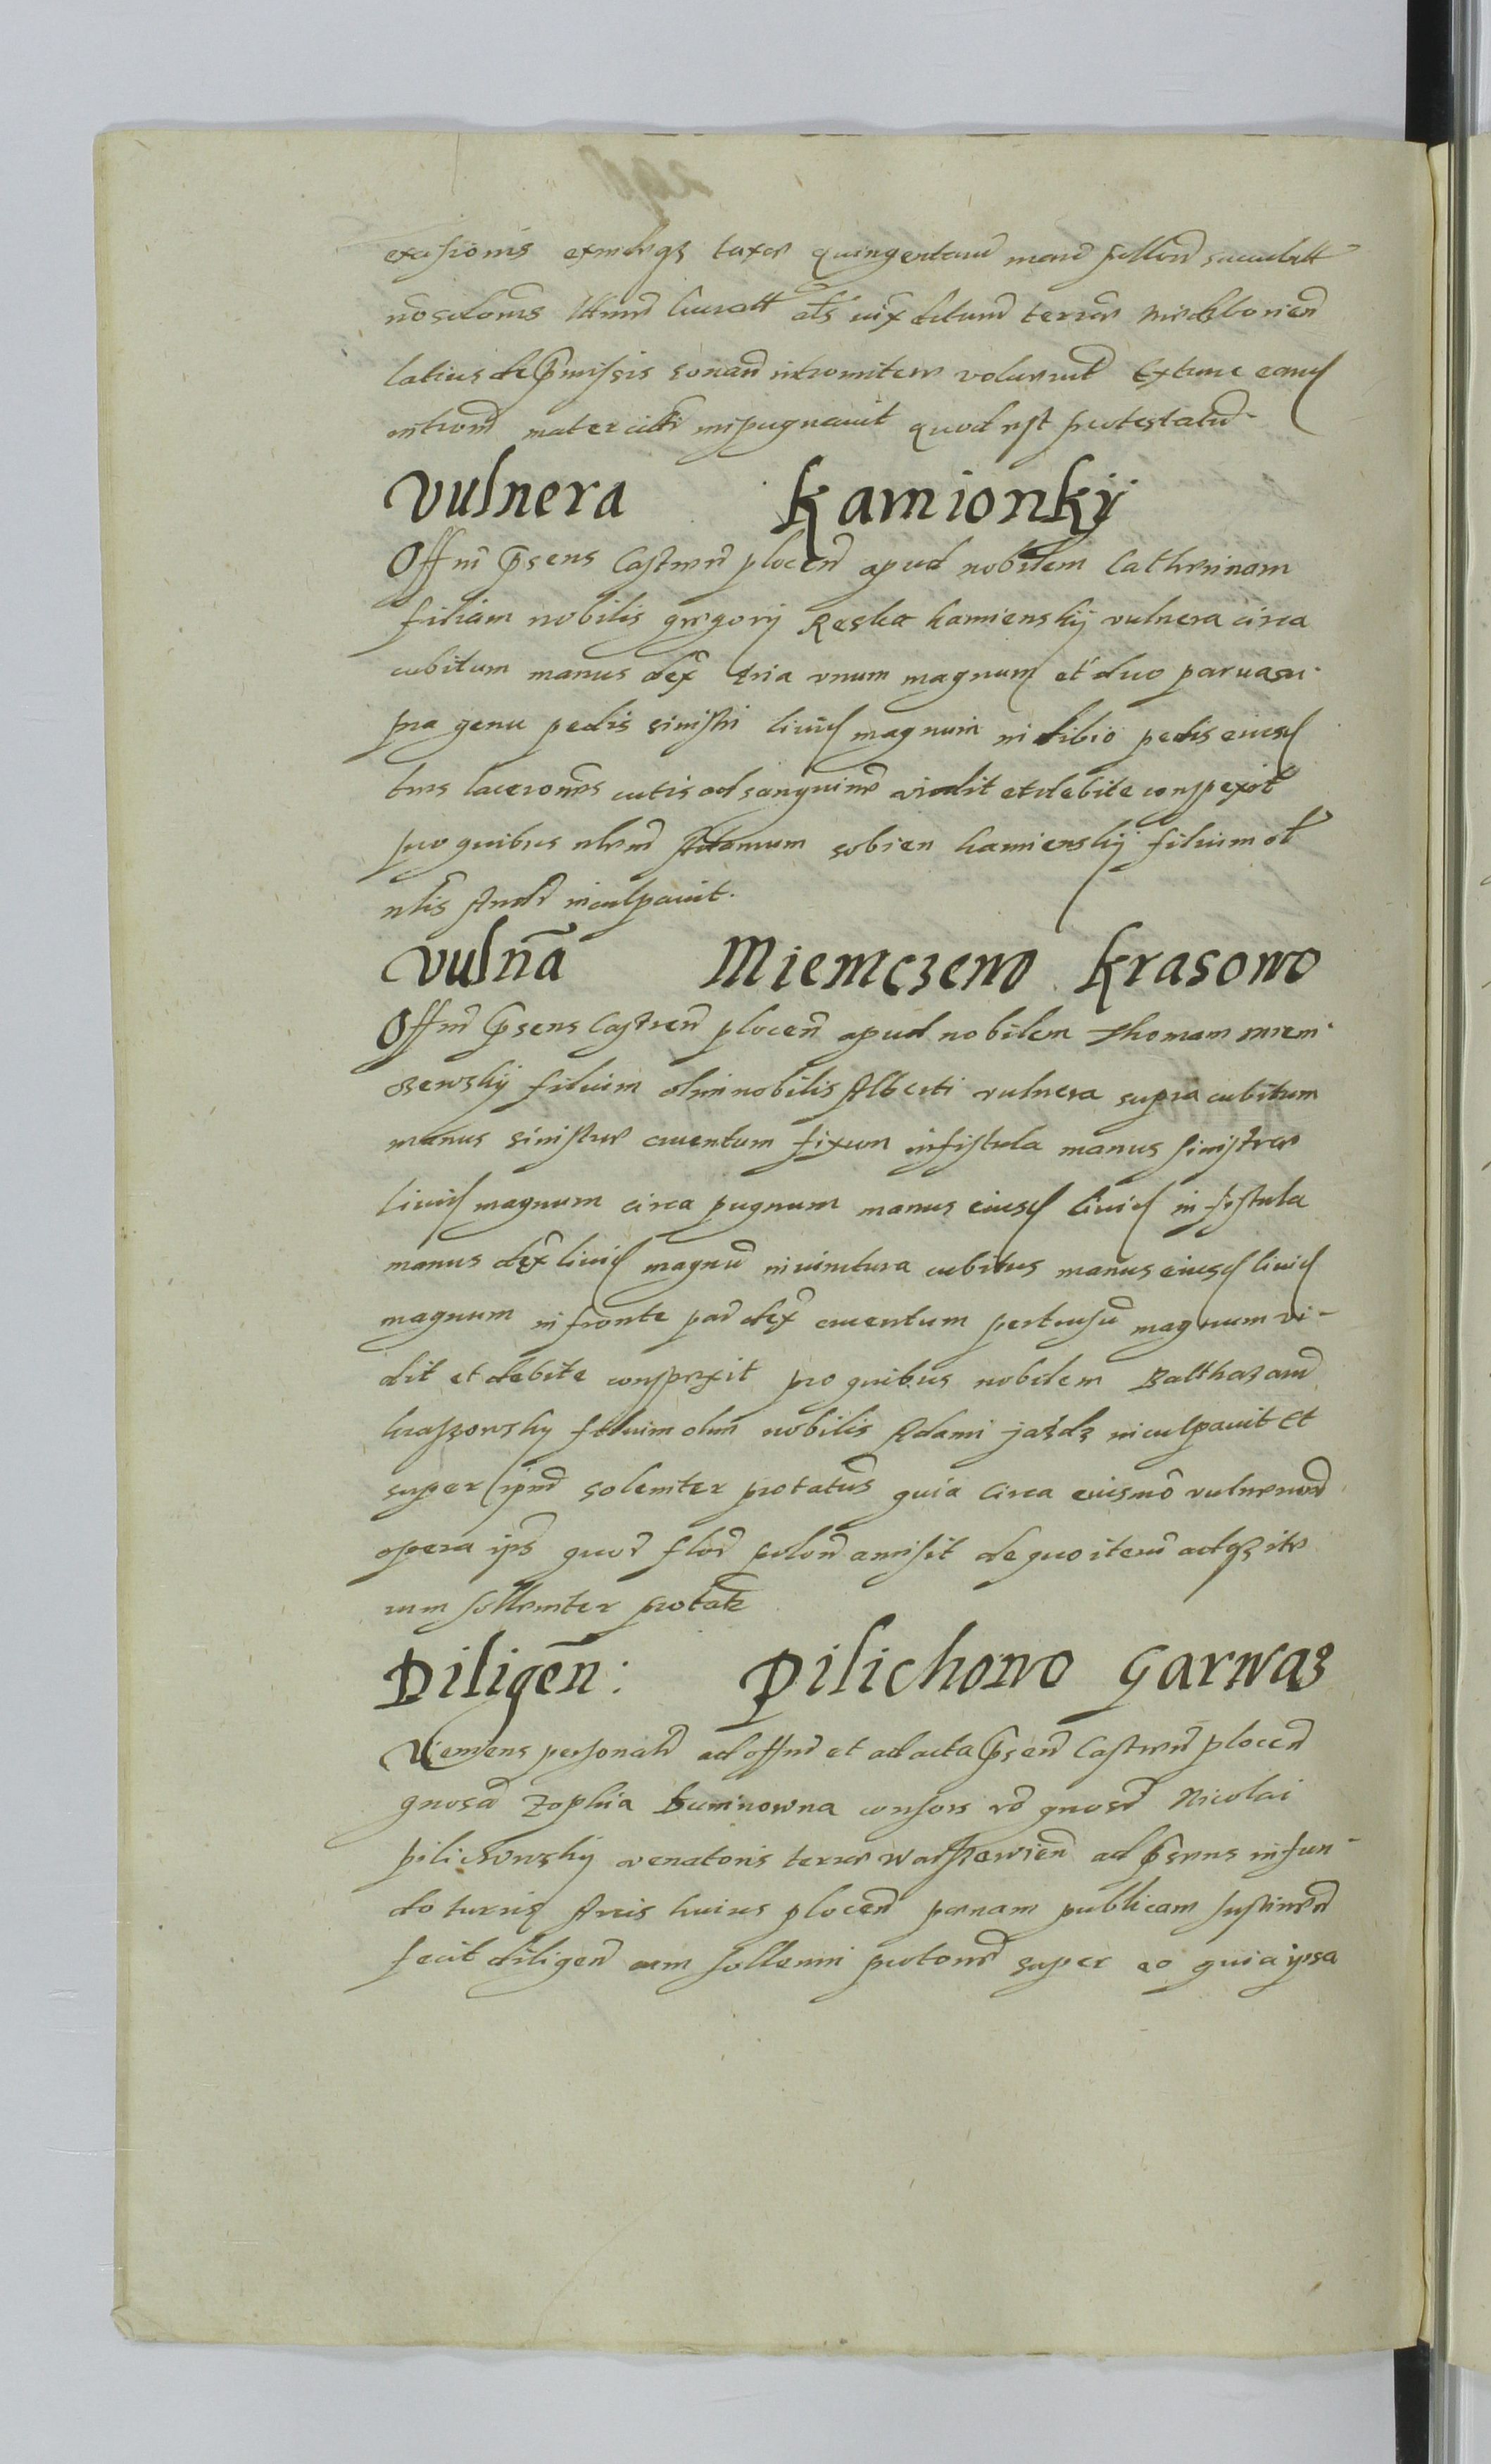 quingentarũ marc
latius de p̃missis sonañ intromittere voluerunt Extunc eand
introm̃ mater impugnavit quod est protestatũ.
Vulnera Kamionkÿ
Offm̃ p̃sens Castren̄ plocen̄ apud nobilem Catherinam
filiam nobilis gregorij Reska kamienskÿ vulnera circa
cubitum manus dex̃ tria vnum magnum et duo parva su-
pra genu pedis sinistri livid magnum in tibio pedis eiusd
tres laceroñes cutis ad sanguinẽ vidit et debite conspexit
pro quibus Adamum sobien kamienskÿ filium ol
nlis Andr̃ inculpavit.
Vulñã Miemczewo Krasowo
Offm̃ p̃sens Castren̄ plocen̄ apud nobilem Thomam miem-
czewskÿ filium olim nobilis Alberti vulnera supra cubitum
manus sinistre cruentum fixum in fistula manus sinistre
livid magnum circa pugnum manus eiusd livid in fistula
manus dex̃ livid magnũ in iunctura cubitus manus eiusd livid
magnum in fronte par̃ dex̃ cruentum pertusũ magnum vi-
dit et debite conspexit pro quibus nobilem Balthazarũ
kraszowsky filium olim nobilis Adami jazdz inculpavit et
super ipm̃ solemter protatus quia circa eiusmõ vulnerañ
opera ips̃ quor̃ flor̃ polon̄ amisit de quo iterũ adqz ite
rum sollemter protatz
Diligeñ: Pilichowo Garwaz
Veniens personalr̃ ad offm̃ et ad acta p̃sen̄ Castren̄ plocen̄
gnosa Zophia Duninowna consors gnosi Nicolai
pilichowskÿ venatoris terre warszewien̄ ad p̃sens in fun-
do turris Arcis huius plocen̄ penam publicam sustineñ
fecit diligen̄ cum sollemni protoñe super eo quia ipsa